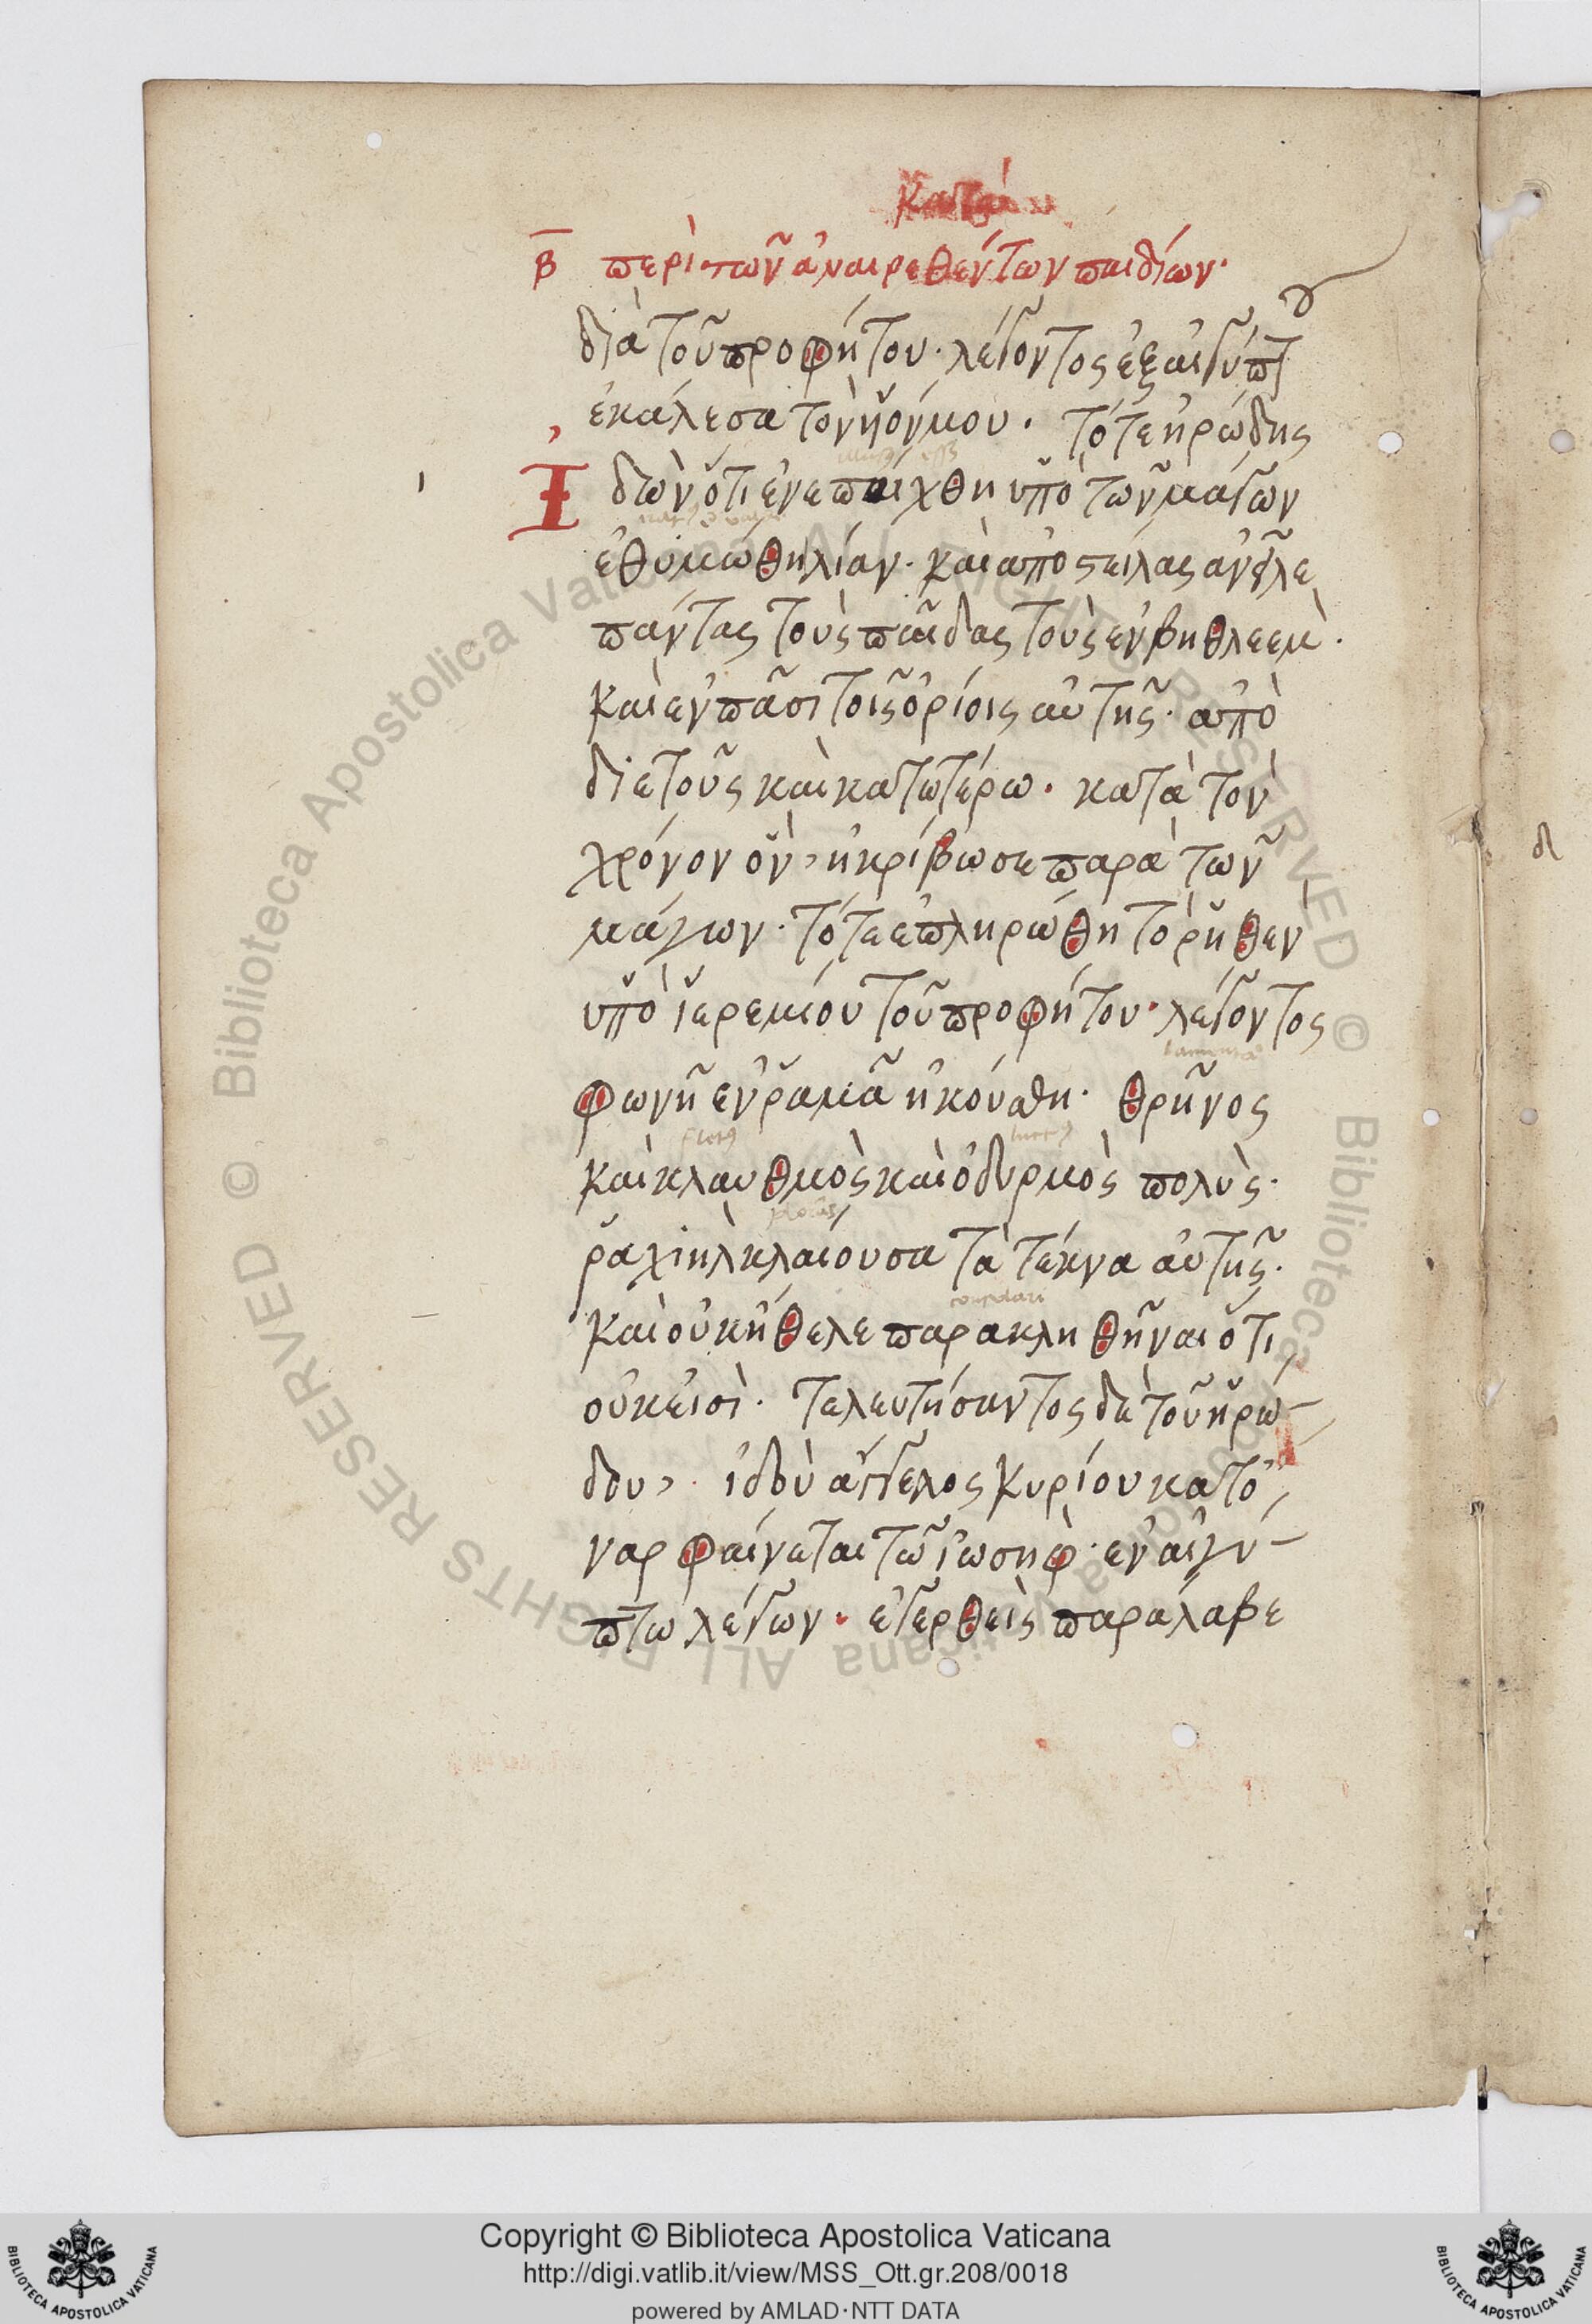 β περὶ τῶν ἀναιρεθέντων παιδίων·
διὰ τοῦ προφήτου· λέγοντος ἐξ αἰγύπτου
ἐκάλεσα τὸν ὑιόν μου· τότε ἡρώδης
Ἰδὼν ὅτι ἐνεπαίχθη ὑπὸ τῶν μάγων
ἐθυμώθη λίαν· καὶ ἀποστείλας ἀνεῖλε
πάντας τοὺς παῖδας τοὺς ἐν βηθλεεμ̀·
καὶ ἐν πᾶσι τοῖς ὁρίοις αὐτῆς· ἀπὸ
διετοῦς καὶ κατωτέρω· κατὰ τὸν
χρόνον ὃν, ἠκρίβωσε παρὰ τῶν
μάγων· τότε ἐπληρώθη τὸ ῥηθὲν
ὑπὸ ἱερεμίου τοῦ προφήτου· λέγοντος
φωνῆ ἐν ῥαμᾶ ἠκούσθη· θρῆνος
καὶ κλαυθμὸς καὶ ὀδυρμὸς πολὺς·
ῥαχιὴλ κλαίουσα τὰ τέκνα αὐτῆς·
καὶ οὐκ ἤθελε παρακληθῆναι ὅτι
οὐκ εἰσὶ· τελευτήσαντος δὲ τοῦ ἡρώ
δου, ἰδοὺ ἄγγελος κυρίου κατ' ὄ
ναρ φαίνεται τῶ ἰωσὴφ· ἐν αἰγύ
πτω λέγων· ἐγερθεὶς παράλαβε
Copyright © Biblioteca Apostolica Vaticana
http://digi.vatlib.it/view/MSS_Ott.gr.208/0018
powered by AMLAD·NTT DATA
BIBLIOTECA APOSTOLICA VATICANA
BIBLIOTECA APOSTOLICA VATICANA
© Biblioteca Apostolica Vaticana ALL RIGHTS RESERVED